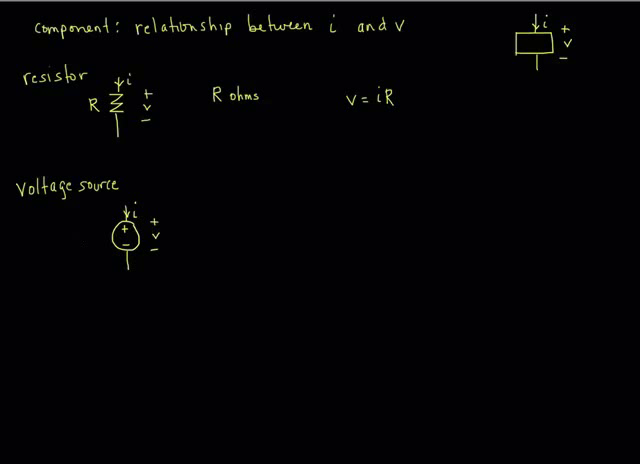 component: relationship between i and v
i
+
v
−
resistor
i
R
+
v
−
R ohms
v = iR
Voltage source
i
+
−
+
v
−